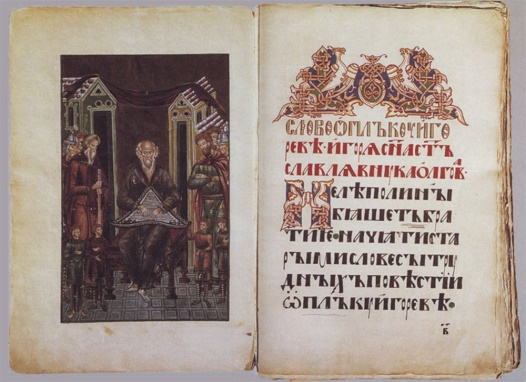 СЛОВО Ѡ ПЛЪКꙊ ИГО
РЕВѢ·ИГОРѦ СН҃А СТЪ
СЛАВЛѦ ВНꙊКА ОЛГОВА
НЕ ЛѢПО ЛИ НЫ
БѦШЕТЪ БРА
ТИЕ·НАЧѦТИ СТА
РЫМИ СЛОВЕСЫ ТРꙊ
ДНЫХЪ ПОВѢСТІИ
Ѡ ПЛЪКꙊ ИГОРЕВѢ·
В҃